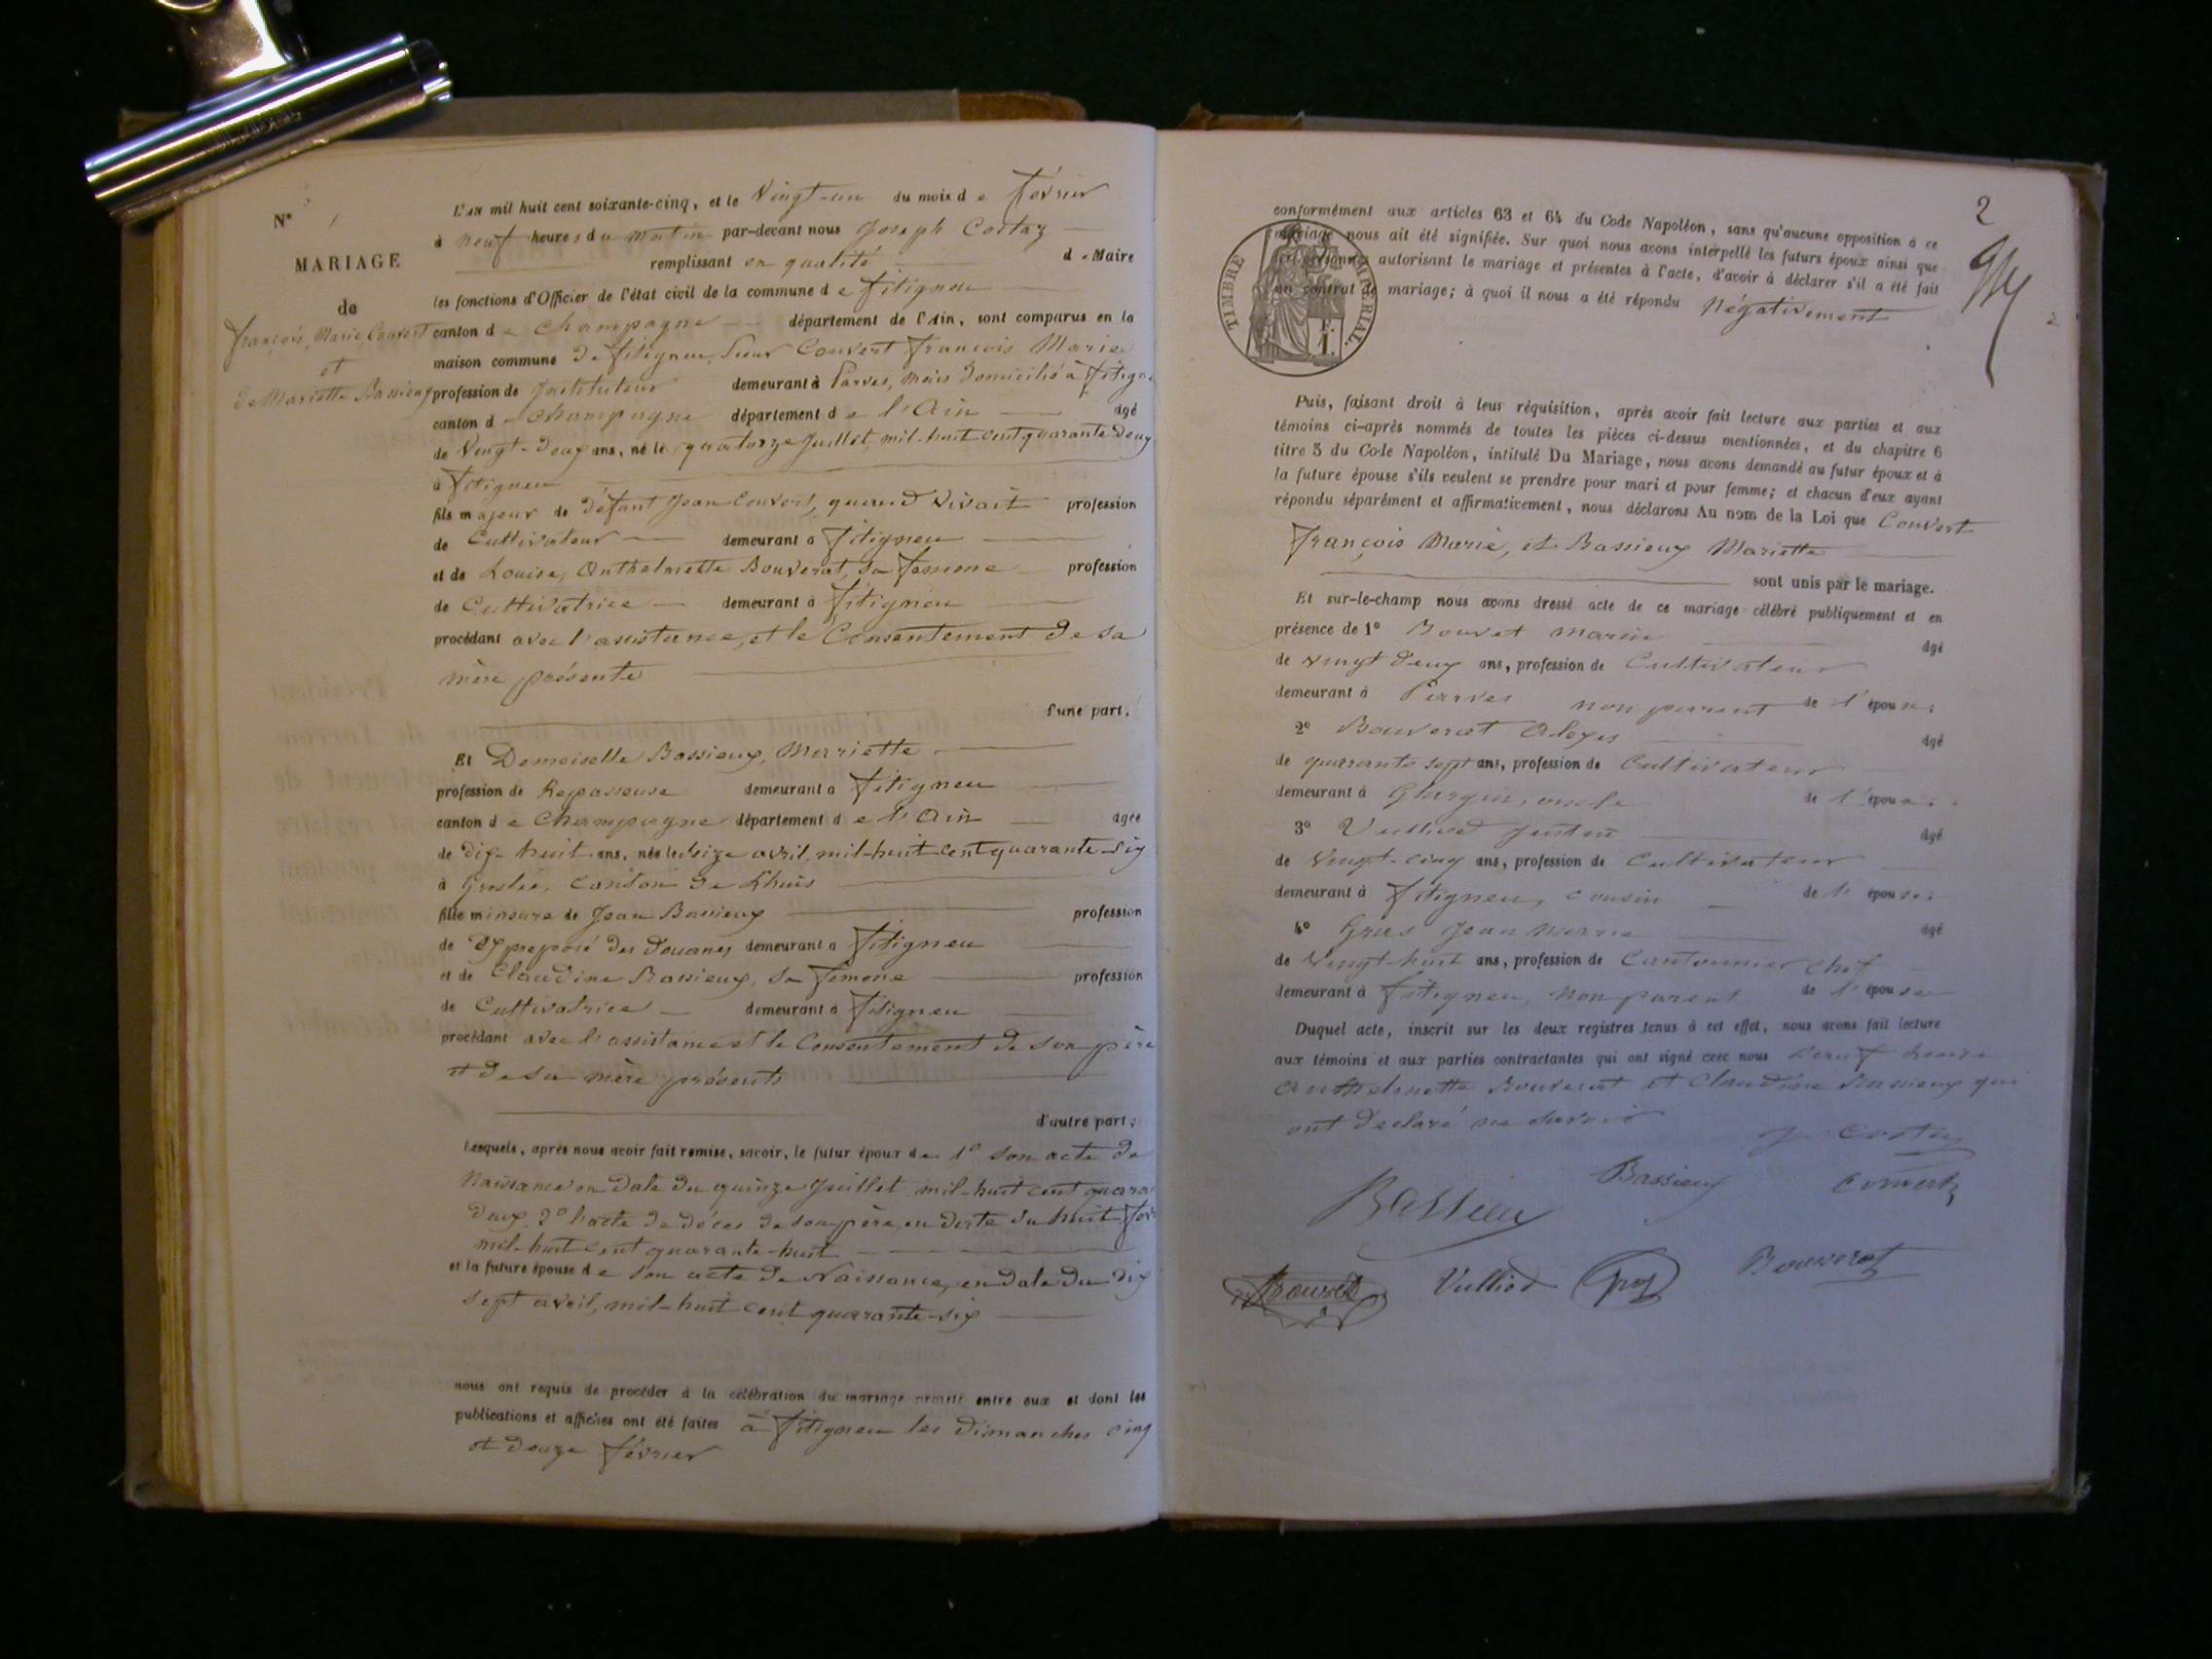 N° 1
MARIAGE
de
François, Marie Convert
et
de Mariette Bassieux
L'an mil huit cent soixante-cinq, et le Vingt-un du mois de février
à neuf heures du matin par-devant nous Joseph Costaz
remplissant en qualité de Maire
les fonctions d'Officier de l'état civil de la commune de fitigneu
canton de Champagne département de l'Ain, sont comparus en la
maison commune de fitigneu, Sieur Convert François Marie
profession de Instituteur demeurant à Parves, mais domicilié à fitigneu
canton de Champagne département de l'Ain âgé
de Vingt-deux ans, né le quatorze Juillet, mil-huit cent quarante deux
à fitigneu
fils majeur de défunt Jean Convert, quand vivait profession
de Cultivateur demeurant à fitigneu
et de Louise, Anthelmette Bouverat, sa femme profession
de Cultivatrice demeurant à fitigneu
procédant avec l'assistance, et le Consentement de sa
mère présente
d'une part.
Et Demoiselle Bassieux, Marriette
profession de Repasseuse demeurant à fitigneu
canton de Champagne département de l'Ain âgée
de dix-huit ans, née le seize avril, mil-huit cent quarante-six
à Groslée, canton de Lhuis
fille mineure de Jean Bassieux profession
de préposé des Douanes demeurant à fitigneu
et de Claudine Bassieux, sa femme profession
de Cultivatrice demeurant à fitigneu
procédant avec l'assistance et le Consentement de son père
et de sa mère présents
d'autre part;
Lesquels, après nous avoir fait remise, savoir, le futur époux de 1° son acte de
Naissance en date du quinze Juillet mil-huit cent quara
deux, 2° l'acte de décès de son père, en date du huit fév
mil-huit cent quarante-huit
et la future épouse de son acte de Naissance, en date du dix
sept avril, mil-huit cent quarante-six
nous ont requis de procéder à la célébration du mariage projeté entre eux et dont les
publications et affiches ont été faites à fitigneu les dimanches cinq
et douze février
2
conformément aux articles 63 et 64 du Code Napoléon, sans qu'aucune opposition à ce
mariage nous ait été signifiée. Sur quoi nous avons interpellé les futurs époux ainsi que
les personnes autorisant le mariage et présentes à l'acte, d'avoir à déclarer s'il a été fait
un contrat de mariage; à quoi il nous a été répondu Négativement
TIMBRE IMPÉRIAL.
Puis, faisant droit à leur réquisition, après avoir fait lecture aux parties et aux
témoins ci-après nommés de toutes les pièces ci-dessus mentionnées, et du chapitre 6
titre 5 du Code Napoléon, intitulé Du Mariage, nous avons demandé au futur époux et à
la future épouse s'ils veulent se prendre pour mari et pour femme; et chacun d'eux ayant
répondu séparément et affirmativement, nous déclarons Au nom de la Loi que Convert
François Marie, et Bassieux Mariette
sont unis par le mariage.
Et sur-le-champ nous avons dressé acte de ce mariage célébré publiquement et en
présence de 1° Bouvet Marin âgé
de vingt deux ans, profession de Cultivateur
demeurant à Parves non parent de l'époux;
2° Bouverat Alexis âgé
de quarante sept ans, profession de Cultivateur
demeurant à oncle de l'époux;
3° Vulliod Justin âgé
de Vingt-cinq ans, profession de Cultivateur
demeurant à fitigneu, cousin de l'épouse;
4° Gras Jean Marie âgé
de Vingt-huit ans, profession de Cantonnier chef
demeurant à fitigneu, non parent de l'épouse
Duquel acte, inscrit sur les deux registres tenus à cet effet, nous avons fait lecture
aux témoins et aux parties contractantes qui ont signé avec nous Sauf Louise
Anthelmette Bouverat et Claudine Bassieux qui
ont déclaré ne savoir
J. Costaz
Bassieux Bassieux Convert
Bouvet Vulliod Gras Bouverat